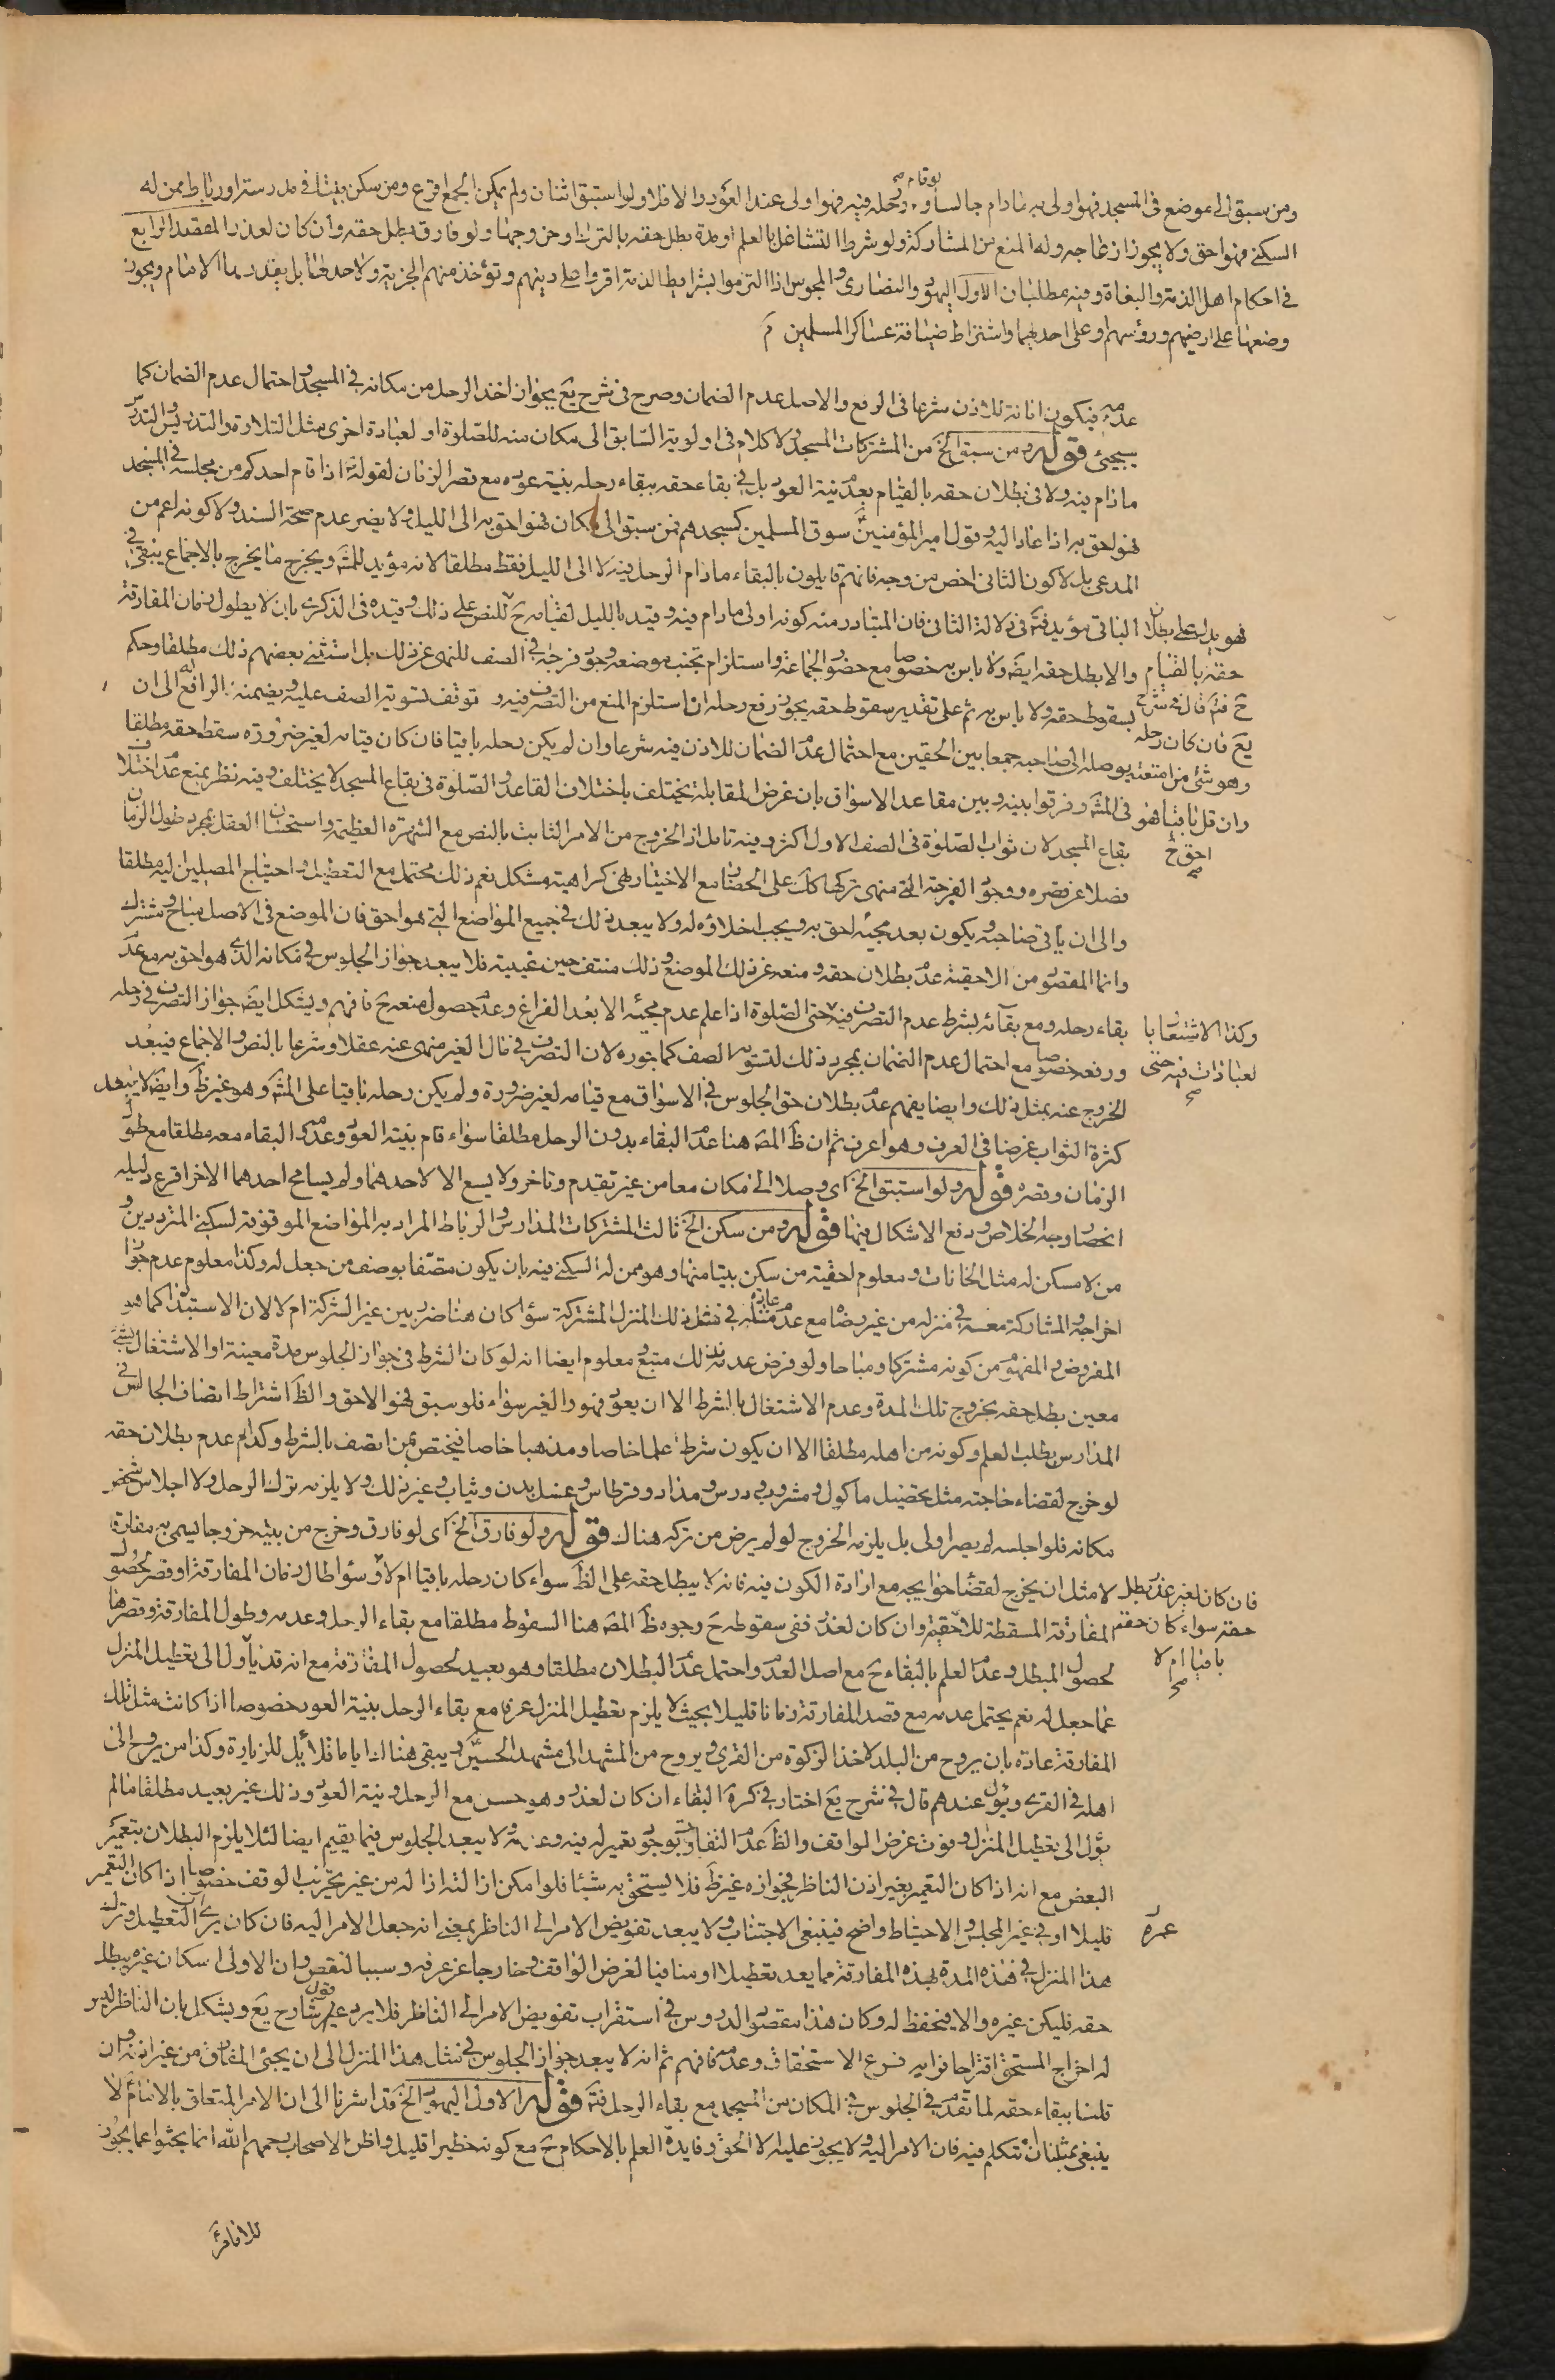 ومن سبق الى موضع فى المسجد فهو اولى به مادام جالسا ولو قام ورحله فيه فهو اولى عند العود والا فلا ولو استبق اثنان ولم يمكن الجمع اقرع ومن سكن بيتا فى مدرسة او رباط ممن له
السكنى فهو احق ولا يجوز ازعاجه وله المنع من المشاركة ولو شرط التشاغل بالعلم او مدة بطل حقه بالترك او خروجها ولو فارق بطل حقه وان كان لعذر المقصد الرابع
فى احكام اهل الذمة والبغاة وفيه مطلبان الاول اليهود والنصارى والمجوس اذا التزموا بشرايط الذمة اقروا على دينهم وتؤخذ منهم الجزية ولا حد لها بل بقدر يما الامام ويجوز
وضعها على ارضيهم ورؤسهم او على احدهما واشتراط ضيافة عساكر المسلمين
عدمه فيكون امانة للاذن شرعا فى الرفع والاصل عدم الضمان وصرح فى شرح يع بجواز اخذ الرحل من مكانه فى المسجد واحتمال عدم الضمان كما
سيجئ قوله ومن سبق الخ من المشتركات المسجد ولا كلام فى اولوية السابق الى مكان منه للصلوة او لعبادة اخرى مثل التلاوة والتدريس والتدرس
مادام فيه ولا فى بطلان حقه بالقيام بعدم نية العود بل فى بقاء حقه ببقاء رحله بنية عوده مع قصر الزمان لقوله اذا قام احدكم من مجلسه فى المسجد
فهو احق به اذا عاد اليه وقول امير المؤمنين سوق المسلمين كمسجدهم فمن سبق الى مكان فهو احق به الى الليل ولا يضر عدم صحة السند ولا كونه اعم من
المدعى بل لا كون الثانى اخص من وجه فانهم قايلون بالبقاء مادام الرحل فيه لا الى الليل فقط مطلقا لانه مؤيد للمشه ويخرج ما يخرج بالاجماع يبقى فى
الباقى مؤيد فتم فى دلالة الثانى فان المتبادر منه كونه اولى مادام فيه وقيد بالليل لقيامه ح للنص على ذلك وقيده فى الذكرى بان لا يطول زمان المفارقة
والا بطل حقه ايضا ولا باس به خصوصا مع حضور الجماعة واستلزام تجنب موضعه وجود فرجة فى الصف للنهى عن ذلك بل استثنى بعضهم ذلك مطلقا وحكم
بسقوط حقه ولا باس به ثم على تقدير سقوط حقه يجوز رفع رحله ان استلزم المنع من التصرف فيه و توقف تسوية الصف عليه ويضمنه الرافع له الى ان
يوصله الى صاحبه جمعا بين الحقين مع احتمال عدم الضمان للاذن فيه شرعا وان لم يكن رحله باقيا فان كان قيامه لغير ضرورة سقط حقه مطلقا
فى المشه وفرقوا بينه وبين مقاعد الاسواق بان غرض المقابلة يختلف باختلاف القاعد والصلوة فى بقاع المسجد لا يختلف وفيه نظر بمنع عدم اختلاف
بقاع المسجد لان ثواب الصلوة فى الصف الاول اكثر وفيه تامل اذ الخروج من الامر الثابت بالنص مع الشهرة العظيمة واستحسان العقل بمجرد طول الزمان
فضلا عن قصره ووجود الفرجة التى منهى تركها كان على الحضار مع الاختيار نهى كراهية مشكل نعم ذلك محتمل مع التعطيل واحتياج المصلين اليه مطلقا
والى ان ياتى صاحبه ويكون بعد مجيئه احق به ويجب اخلاؤه له ولا يبعد ذلك فى جميع المواضع التى هو احق فان الموضع فى الاصل مباح ومشترك
وانما المقصود من الاحقية عدم بطلان حقه ومنعه عن ذلك الموضع وذلك منتف حين غيبته فلا يبعد جواز الجلوس فى مكانه الذى هو احق به مع عدم
بقاء رحله ومع بقائه بشرط عدم التصرف فيه حتى الصلوة اذا علم عدم مجيئه الا بعد الفراغ وعدم حصول منعه ح فافهم ويشكل ايضا جواز التصرف فى رحله
ورفعه خصوصا مع احتمال عدم الضمان بمجرد ذلك لتسوية الصف كما جوزه لان التصرف فى مال الغير منهى عنه عقلا وشرعا بالنص والاجماع فيبعد
الخروج عنه بمثل ذلك وايضا يفهم عدم بطلان حق الجلوس فى الاسواق مع قيامه لغير ضرورة ولم يكن رحله باقيا على المشه وهو غير ظ وايضا لا يبعد
كثرة الثواب غرضا فى العرف وهو اعرف ثم ان ظ المصه هنا عدم البقاء بدون الرحل مطلقا سواء قام بنية العود وعدمه والبقاء معه مطلقا مع طول
الزمان وقصره قوله ولو استبق الخ اى وصلا الى مكان معا من غير تقدم وتاخر ولا يسع الا لاحدهما ولم يسامح احدهما الاخر اقرع دليله
انحصار وجه الخلاص ودفع الاشكال فيها قوله ومن سكن الخ ثالث المشتركات المدارس والرباط المراد به المواضع الموقوفة لسكنى المترددين و
من لا مسكن له مثل الخانات ومعلوم احقية من سكن بيتا منها وهو ممن له السكنى فيه بان يكون متصفا بوصف من جعل له وكذا معلوم عدم جواز
اخراجه والمشاركة معه فى منزله من غير رضاه مع عدم عادة مثله فى مثل ذلك المنزل المشتركة سواء كان هنا ضرر بين غير الشركة ام لا لان الاستبداد كما هو
المفروض والمفهوم من كونه مشتركا ومباحا ولو فرض عدمه ذلك متبع ومعلوم ايضا انه لو كان الشرط فى جواز الجلوس مدة معينة او الاشتغال بشئ
معين بطل حقه بخروج تلك المدة وعدم الاشتغال بالشرط الا ان يعود فهو والغير سواء فلو سبق فهو الاحق والظ اشتراط اتصاف الجالس فى
المدارس بطلب العلم وكونه من اهله مطلقا الا ان يكون شرط علما خاصا ومذهبا خاصا فيختص بمن اتصف بالشرط وكذا مع عدم بطلان حقه
لو خرج لقضاء حاجته مثل تحصيل ماكول ومشروب ودرس ومداد وقرطاس وغسل بدن وثياب وغير ذلك ولا يلزمه ترك الرحل ولا اجلاس شخص
مكانه فلو اجلسه لم يصر اولى بل يلزمه الخروج لو لم يرض من تركه هناك قوله ولو فارق الخ اى لو فارق وخرج من بيته خروجا يسمى به مفارقة
لا مثل ان يخرج لقضاء حوايجه مع ارادة الكون فيه فانه لا يبطل حقه على الظ سواء كان رحله باقيا ام لا وسواء طال زمان المفارقة او قصر لحصول
المفارقة المسقطة للاحقية وان كان لعذر ففى سقوطه ح وجوه ظ المصه هنا السقوط مطلقا مع بقاء الرحل وعدمه وطول المفارقة وقصرها
لحصول المبطل وعدم العلم بالبقاء ح مع اصل العدم واحتمل عدم البطلان مطلقا وهو بعيد لحصول المفارقة مع انه قد يأول الى تعطيل المنزل
عما جعل له نعم يحتمل عدمه مع قصد المفارقة زمانا قليلا بحيث لا يلزم تعطيل المنزل عرفا مع بقاء الرحل بنية العود خصوصا اذا كانت مثل تلك
المفارقة عادة بان يروح من البلد لاخذ الزكوة من القرى ويروح من المشهد الى مشهد الحسين ويبقى هناك اياما قلايل للزيارة وكذا من يروح الى
اهله فى القرى ويئول عندهم قال فى شرح يع اختار فى كرة البقاء ان كان لعذر وهو حسن مع الرحل ونية العود وذلك غير بعيد مطلقا مالم
يئول الى تعطيل المنزل وفوت غرض الواقف والظ عدم التفاوت بوجود تعمير له فيه وعدمه ولا يبعد الجلوس فيما يقيم ايضا لئلا يلزم البطلان بتعمير
البعض مع انه اذا كان التعمير بغير اذن الناظر فجوازه غير ظ فلا يستحق به شيئا فلو امكن ازالته ازاله من غير تخريب الوقف خصوصا اذا كان التعمير
قليلا او فى غير المجلس والاحتياط واضح فينبغى الاجتناب ولا يبعد تفويض الامر الى الناظر بمعنى انه جعل الامر اليه فان كان يرى التعطيل وترك
هذا المنزل فى هذه المدة بهذه المفارقة مما يعد تعطيلا او منافيا لغرض الواقف وخارجا عن عرفه وسببا لنقص وان الاولى اسكان غيره يبطل
حقه فليكن غيره والا فيحفظ له وكان هذا مقصود الدروس فى استقراب تفويض الامر الى الناظر فلا يرد عليه قول شارح يع ويشكل بان الناظر ليس
له اخراج المستحق اقتراحا فرايه فرع الاستحقاق وعدمه فافهم ثم انه لا يبعد جواز الجلوس فى مثل هذا المنزل الى ان يجئ المفارق من غير اذنه وان
قلنا ببقاء حقه لما تقدم فى الجلوس فى المكان من المسجد مع بقاء الرحل فتم قوله الاول اليهود الخ قد اشرنا الى ان الامر المتعلق بالامام لا
ينبغى بمثلنا ان نتكلم فيه فان الامر اليه ولا يجوز عليه الا الحق وفايدة العلم بالاحكام ح مع كونه خطيرا قليل واظن الاصحاب رحمهم الله انما بحثوا عما يجوز
فهو يدل على بطلان
حقه بالقيام
ح فتم قال فى شرح
يع فان كان رحله
وهو شئ من امتعته
وان قل باقيا فهو
احق ح
وكذا الاشتغال با
لعبادات فيه حتى
فان كان لغير عذر بطل
حقه سواء كان حقه
باقيا ام لا
عمره